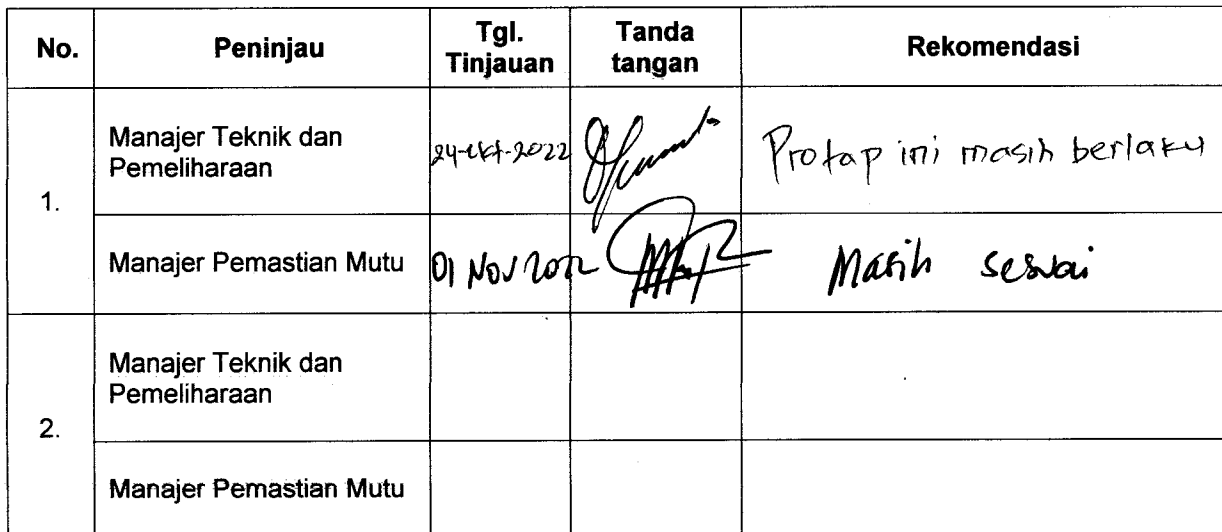 No.
Peninjau
Tgl.
Tinjauan
Tanda
tangan
Rekomendasi
1.
Manajer Teknik dan
Pemeliharaan
24-okt-2022
Protap ini masih berlaku
Manajer Pemastian Mutu
01 Nov 2022
Masih sesuai
2.
Manajer Teknik dan
Pemeliharaan
Manajer Pemastian Mutu